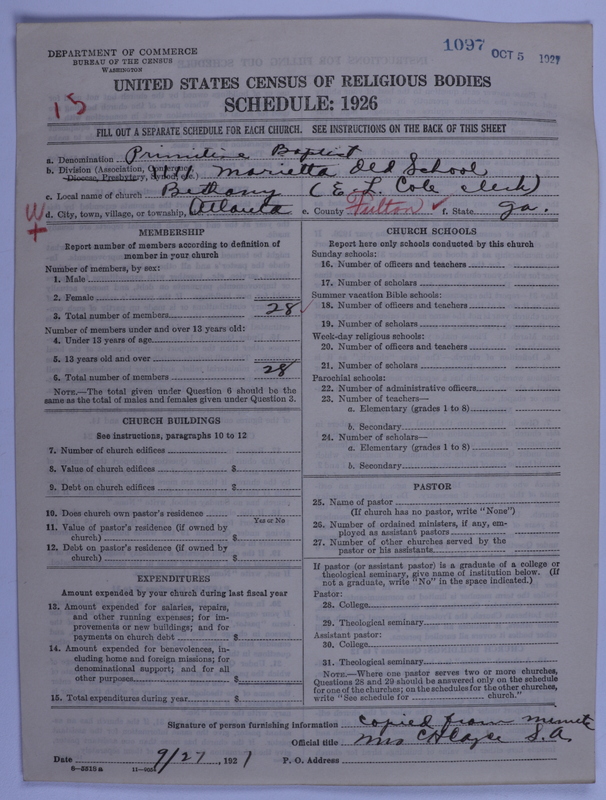 DEPARTMENT OF COMMERCE
BUREAU OF THE CENSUS
WASHINGTON
1097
OCT 5 1927
15
UNITED STATES CENSUS OF RELIGIOUS BODIES
SCHEDULE: 1926
FILL OUT A SEPARATE SCHEDULE FOR EACH CHURCH. SEE INSTRUCTIONS ON THE BACK OF THIS SHEET
a. Denomination Primitive Baptist
b. Division (Association, Conference, Diocese, Presbytery, Synod, etc.) Marietta Old School
c. Local name of church Bethany (E. L. Cole clerk)
d. City, town, village, or township, Atlanta e. County Fulton ✓ f. State Ga.
MEMBERSHIP
Report number of members according to definition of
member in your church
Number of members, by sex:
1. Male
2. Female
3. Total number of members 28
Number of members under and over 13 years old:
4. Under 13 years of age
5. 13 years old and over
6. Total number of members 28
NOTE.—The total given under Question 6 should be the
same as the total of males and females given under Question 3.
CHURCH BUILDINGS
See instructions, paragraphs 10 to 12
7. Number of church edifices
8. Value of church edifices $
9. Debt on church edifices $
10. Does church own pastor's residence
Yes or No
11. Value of pastor's residence (if owned by
church) $
12. Debt on pastor's residence (if owned by
church) $
EXPENDITURES
Amount expended by your church during last fiscal year
13. Amount expended for salaries, repairs,
and other running expenses; for im-
provements or new buildings; and for
payments on church debt $
14. Amount expended for benevolences, in-
cluding home and foreign missions; for
denominational support; and for all
other purposes $
15. Total expenditures during year $
CHURCH SCHOOLS
Report here only schools conducted by this church
Sunday schools:
16. Number of officers and teachers
17. Number of scholars
Summer vacation Bible schools:
18. Number of officers and teachers
19. Number of scholars
Week-day religious schools:
20. Number of officers and teachers
21. Number of scholars
Parochial schools:
22. Number of administrative officers
23. Number of teachers—
a. Elementary (grades 1 to 8)
b. Secondary
24. Number of scholars—
a. Elementary (grades 1 to 8)
b. Secondary
PASTOR
25. Name of pastor
(If church has no pastor, write "None")
26. Number of ordained ministers, if any, em-
ployed as assistant pastors
27. Number of other churches served by the
pastor or his assistants
If pastor (or assistant pastor) is a graduate of a college or
theological seminary, give name of institution below. (If
not a graduate, write "No" in the space indicated.)
Pastor:
28. College
29. Theological seminary
Assistant pastor:
30. College
31. Theological seminary
NOTE.—Where one pastor serves two or more churches,
Questions 28 and 29 should be answered only on the schedule
for one of the churches; on the schedules for the other churches,
write "See schedule for church."
Signature of person furnishing information copied from
Official title Mrs S.A.
Date 9/27, 1927 P. O. Address
8-5518a 11-9051